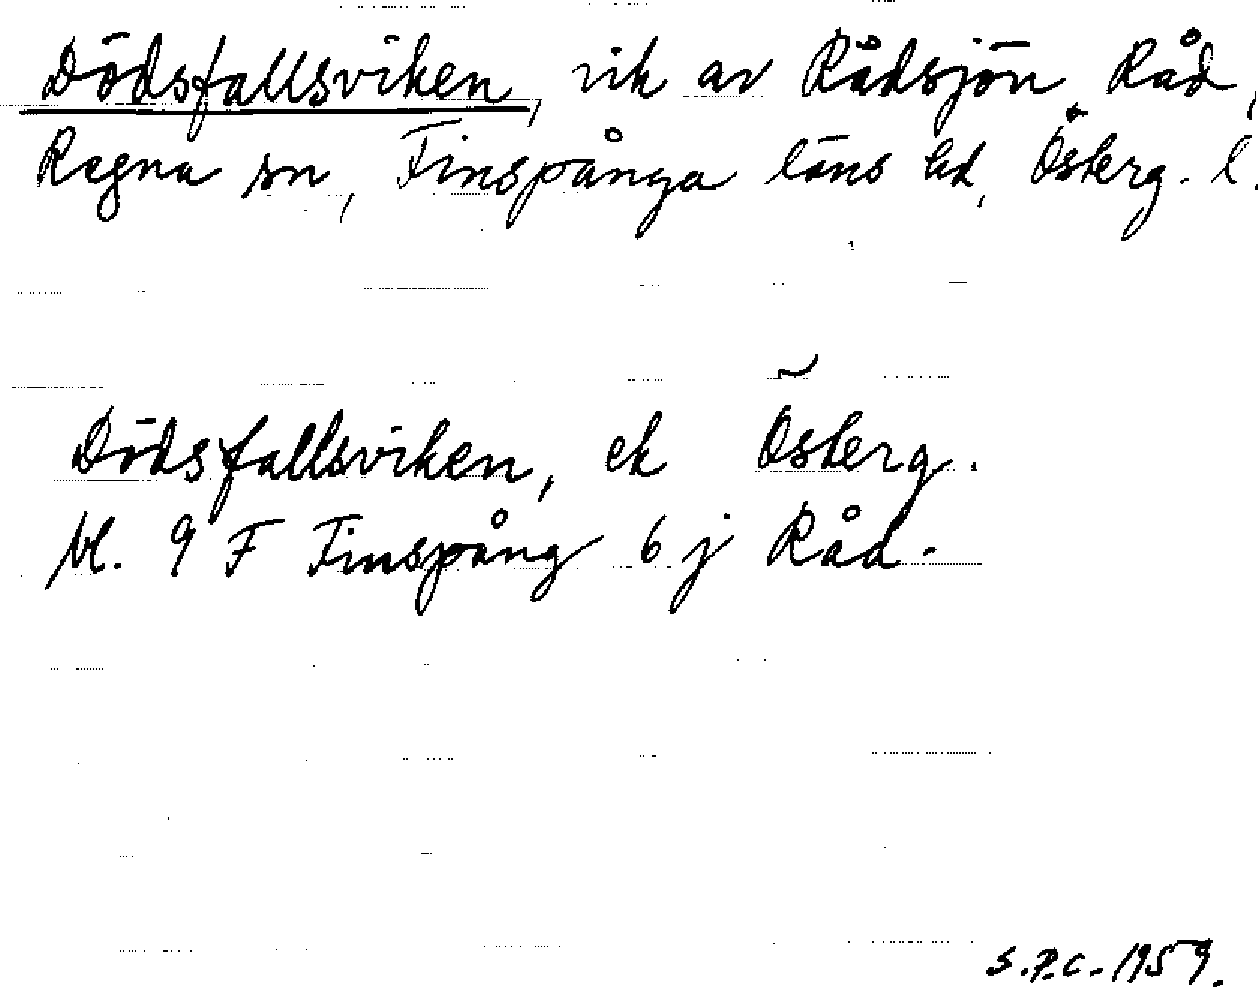 Dödsfallsviken, vik av Rådsjön, Råd,
Regna sn, Finspånga läns hd, Österg. l.
Dödsfallsviken, ek Österg.
bl. 9 F Finspång 6 j Råd.
S.P.C. 1959.